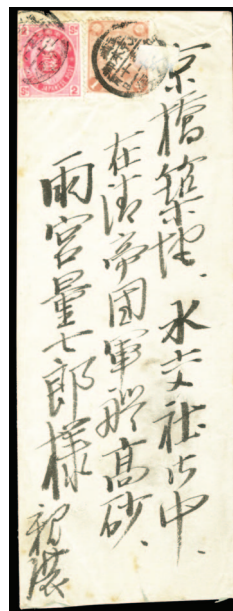 京橋築地、水交社御中、
在清帝国軍艦高砂、
雨宮量七郎様 親展